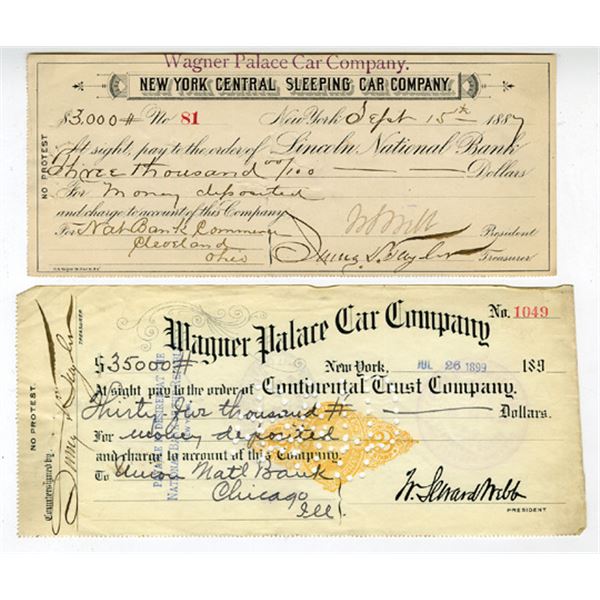 Wagner Palace Car Company.
NEW YORK CENTRAL SLEEPING CAR COMPANY.
$3,000# No 81 New York Sept 15th 1887
At sight, pay to the order of Lincoln National Bank
Three thousand 00/100 Dollars
For Money deposited
and charge to account of this Company
For Nat Bank Commerce President
Cleveland
Ohio Treasurer
NO PROTEST
No. 1049
Wagner Palace Car Company
$35000# New York, JUL 26 1899 189
At sight pay to the order of Continental Trust Company.
Thirty five thousand # Dollars.
For money deposited
and charge to account of this Company.
To Union Natl Bank
Chicago
Ill
W. Seward Webb
PRESIDENT
NO PROTEST.
Countersigned by
TREASURER
PAYABLE IF DESIRED AT THE